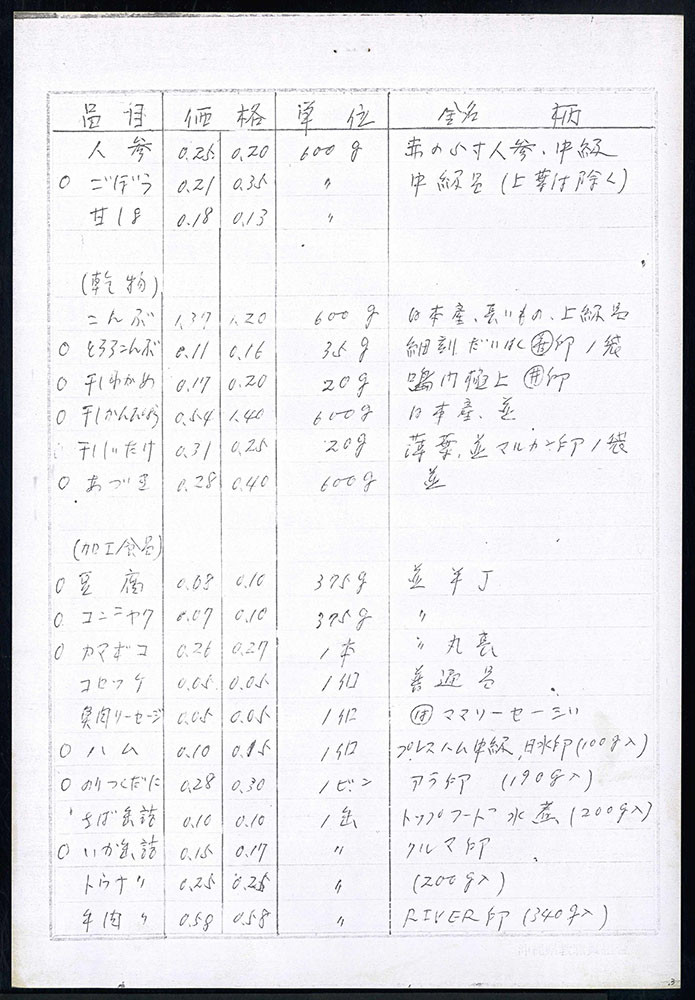 品目 価格 単位 銘柄
人参 0.25 0.20 600g 中級
○ ごぼう 0.21 0.35 〃 中級品(上等は除く)
甘しょ 0.18 0.13 〃
(乾物)
こんぶ 1.37 1.20 600g 日本産、長いもの、上級品
○ とろろこんぶ 0.11 0.16 35g 細刻 印 1袋
○ 干しわかめ 0.17 0.20 20g 鳴門極上 印
○ 干しかんぴょう 0.54 1.40 600g 日本産、並
干しいたけ 0.31 0.25 20g 薄葉、並マルカン印1袋
○ あづき 0.28 0.40 600g 並
(加工食品)
○ 豆腐 0.08 0.10 375g 並半丁
○ コンニャク 0.07 0.10 375g 〃
○ カマボコ 0.26 0.27 1本 〃 丸長
コロッケ 0.05 0.05 1ケ 普通品
魚肉ソーセージ 0.05 0.05 1ケ ㋩
○ ハム 0.10 0.15 1ケ プレスハム中級、日水印(100g入)
○ のりつくだに 0.28 0.30 1ビン アラ印 (190g入)
さば缶詰 0.10 0.10 1缶 トップフード水煮(200g入)
○ いか缶詰 0.15 0.17 〃 クルマ印
トウナ〃 0.25 0.25 〃 (200g入)
牛肉〃 0.58 0.58 〃 RIVER印(340g入)